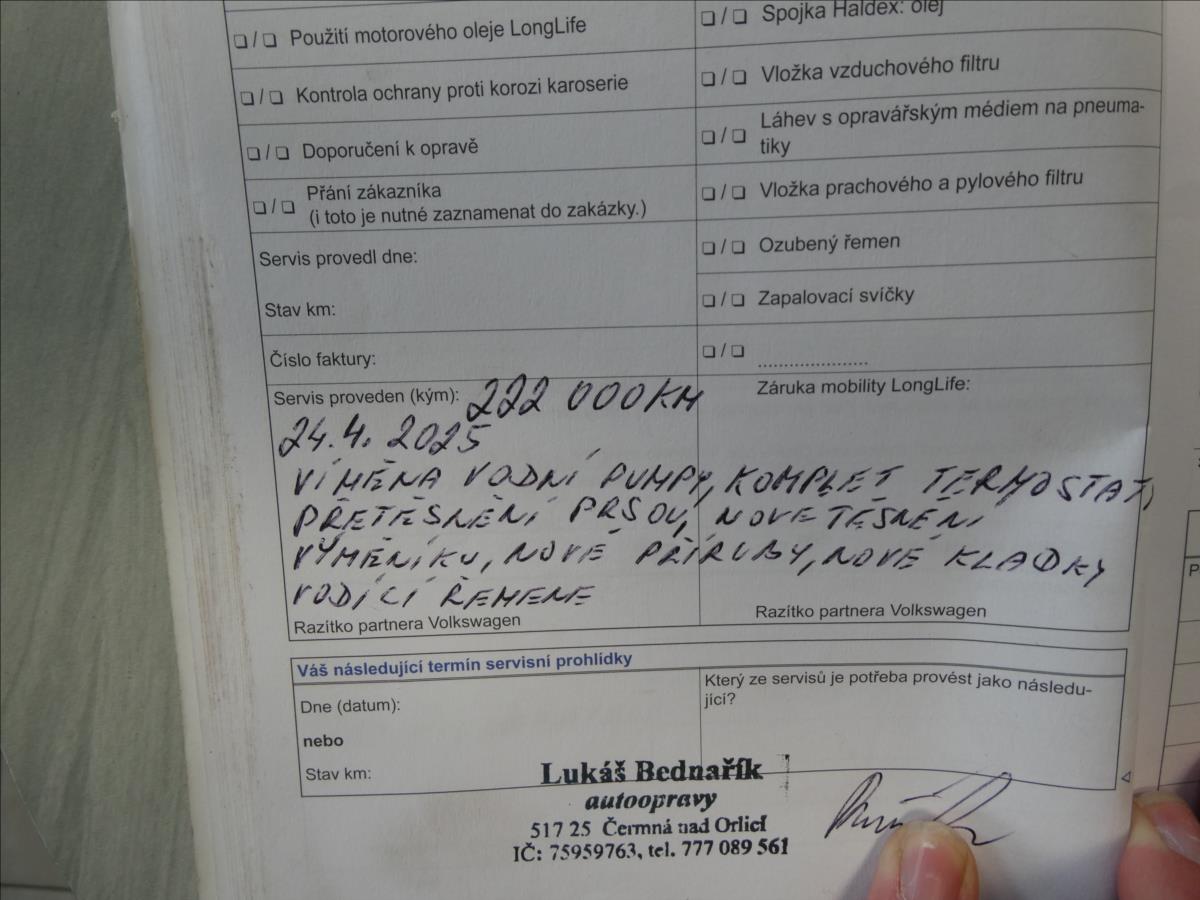 ❏ / ❏ Použití motorového oleje LongLife
❏ / ❏ Kontrola ochrany proti korozi karoserie
❏ / ❏ Doporučení k opravě
❏ / ❏ Přání zákazníka
(i toto je nutné zaznamenat do zakázky.)
Servis provedl dne:
Stav km:
Číslo faktury:
❏ / ❏ Spojka Haldex: olej
❏ / ❏ Vložka vzduchového filtru
❏ / ❏ Láhev s opravářským médiem na pneuma-
tiky
❏ / ❏ Vložka prachového a pylového filtru
❏ / ❏ Ozubený řemen
❏ / ❏ Zapalovací svíčky
❏ / ❏ .....................
Servis proveden (kým): 222 000KM
Záruka mobility LongLife:
24.4. 2025
VÍMĚNA VODNÍ PUMPY, KOMPLET TERMOSTAT,
PŘETĚSNĚNÍ PRŠOV, NOVE TĚSNĚNÍ
VÝMĚNÍKU, NOVÉ PŘÍRUBY, NOVÉ KLADKY
VODÍCÍ ŘEMENE
Razítko partnera Volkswagen
Razítko partnera Volkswagen
Váš následující termín servisní prohlídky
Dne (datum):
nebo
Stav km:
Který ze servisů je potřeba provést jako následu-
jící?
Lukáš Bednařík
autoopravy
517 25 Čermná nad Orlicí
IČ: 75959763, tel. 777 089 561